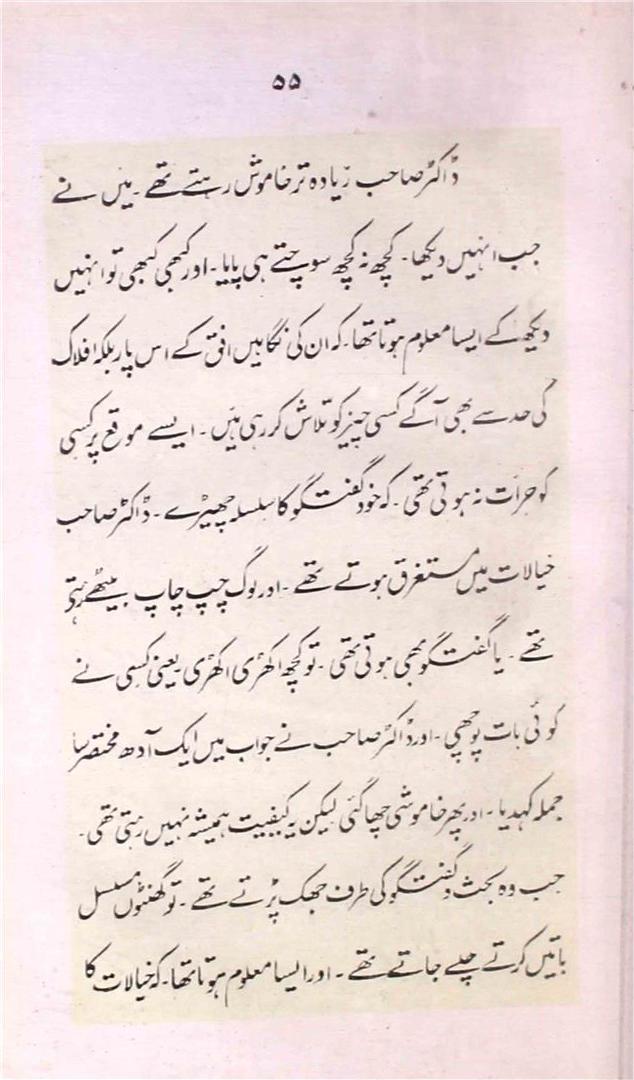 ۵۵
ڈاکٹر صاحب زیادہ تر خاموش رہتے تھے ۔ میں نے
جب انہیں دیکھا ۔ کچھ نہ کچھ سوچتے ہی پایا ۔ اور کبھی کبھی تو انہیں
دیکھ کے ایسا معلوم ہوتا تھا ۔ کہ ان کی نگاہیں افق کے اس پار بلکہ افلاک
کی حد سے بھی آگے کسی چیز کو تلاش کر رہی ہیں ۔ ایسے موقع پر کسی
کو جرأت نہ ہوتی تھی ۔ کہ خود گفتگو کا سلسلہ چھیڑے ۔ ڈاکٹر صاحب
خیالات میں مستغرق ہوتے تھے ۔ اور لوگ چپ چاپ بیٹھے رہتے
تھے ۔ یا گفتگو بھی ہوتی تھی ۔ تو کچھ اکھڑی اکھڑی یعنی کسی نے
کوئی بات پوچھی ۔ اور ڈاکٹر صاحب نے جواب میں ایک آدھ مختصر سا
جملہ کہدیا ۔ اور پھر خاموشی چھا گئی لیکن یہ کیفیت ہمیشہ نہیں رہتی تھی ۔
جب وہ بحث و گفتگو کی طرف جھک پڑتے تھے ۔ تو گھنٹوں مسلسل
باتیں کرتے چلے جاتے تھے ۔ اور ایسا معلوم ہوتا تھا ۔ کہ خیالات کا